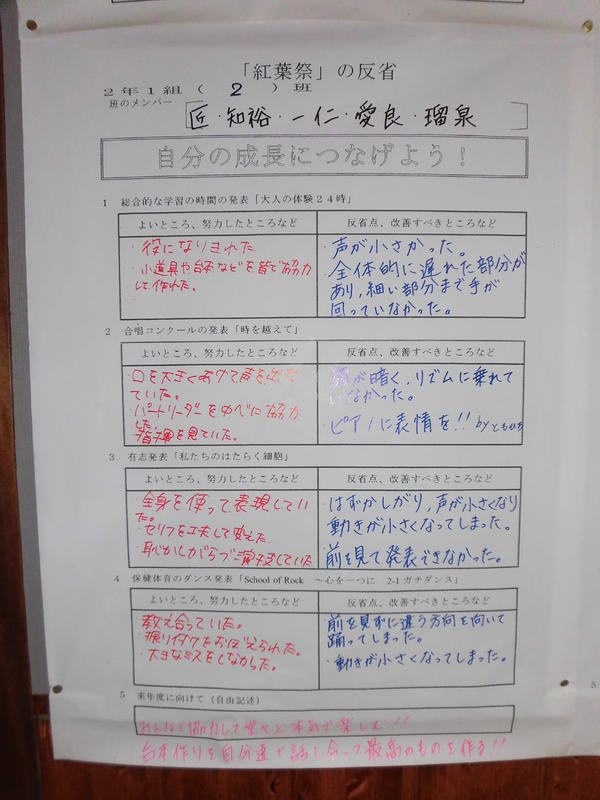 「紅葉祭」の反省
2年1組( 2 )班
班のメンバー
匠・知裕・一仁・愛良・瑠泉
自分の成長につなげよう!
1 総合的な学習の時間の発表「大人の体験24時」
よいところ、努力したところなど
反省点、改善すべきところなど
・役になりきれた
・小道具や台本などを皆で協力
して作れた。
・声が小さかった。
・全体的に遅れた部分が
あり,細い部分まで手が
回っていなかった。
2 合唱コンクールの発表「時を越えて」
よいところ、努力したところなど
反省点、改善すべきところなど
・口を大きくあけて声を出し
ていた。
・パートリーダーを中心に協力
した。
・指揮を見ていた。
が暗く,リズムに乗れて
いなかった。
・ピアノに表情を!! by ともひろ
3 有志発表「私たちのはたらく細胞」
よいところ、努力したところなど
反省点、改善すべきところなど
・全身を使って表現してい
た。
・セリフを工夫して変えた
・恥かしがらずに演技をしていた
・はずかしがり,声が小さくなり
動きが小さくなってしまった。
・前を見て発表できなかった。
4 保健体育のダンス発表「School of Rock ~心を一つに 2-1 ガチダンス」
よいところ、努力したところなど
反省点、改善すべきところなど
・教え合っていた。
・振りイタクをおぼえられた。
・大きなミスをしなかった。
・前を見ずに違う方向を向いて
踊ってしまった。
・動きが小さくなってしまった。
5 来年度に向けて(自由記述)
みんなで協力して堂々と本気で楽しむ!!
台本作りを自分達で話し合って最高のものを作る!!